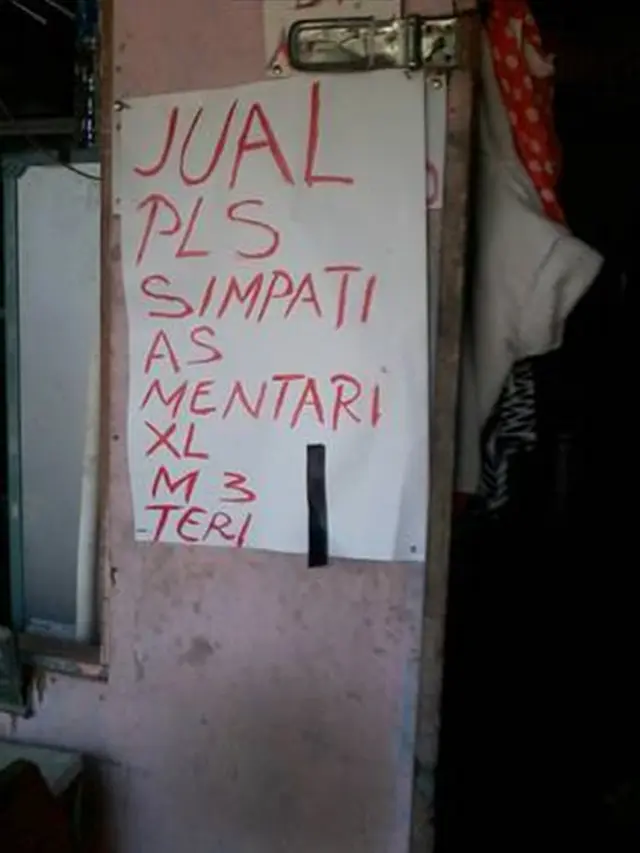 JUAL
PLS
SIMPATI
AS
MENTARI
XL
M 3
TERI